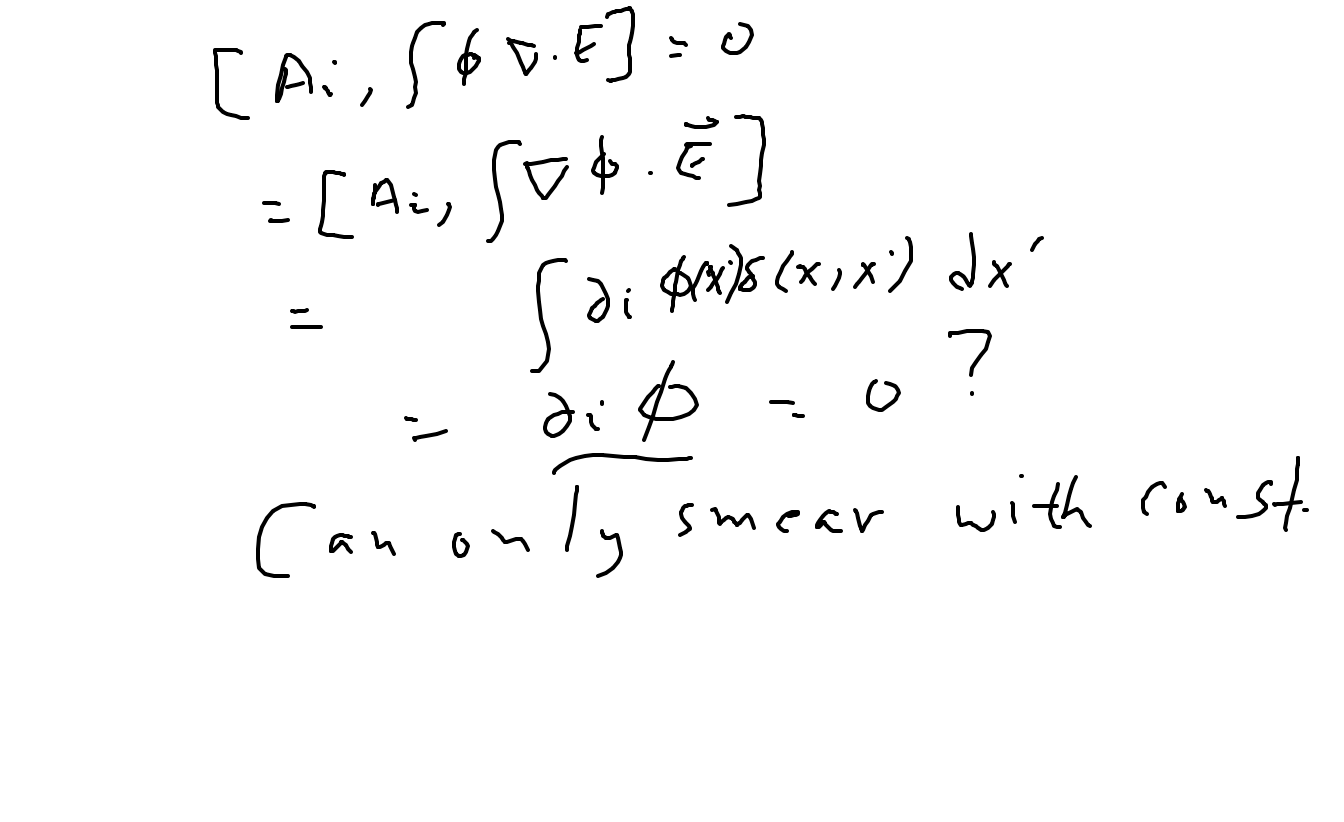 [Ai, ∫ϕ ∇·E] = 0
= [Ai, ∫∇ϕ·E⃗]
= ∫∂i ϕ(x')δ(x,x') dx'
= ∂i ϕ = 0 ?
Can only smear with const.